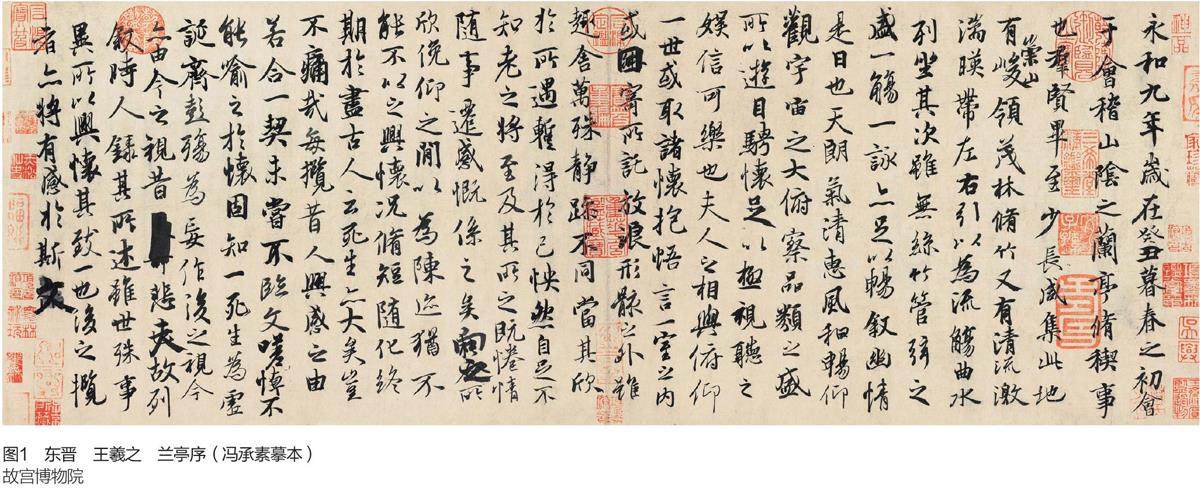 永和九年歲在癸丑暮春之初會
于會稽山陰之蘭亭脩稧事
也羣賢畢至少長咸集此地
有崇山峻領茂林脩竹又有清流激
湍暎帶左右引以為流觴曲水
列坐其次雖無絲竹管弦之
盛一觴一詠亦足以暢敘幽情
是日也天朗氣清惠風和暢仰
觀宇宙之大俯察品類之盛
所以遊目騁懷足以極視聽之
娛信可樂也夫人之相與俯仰
一世或取諸懷抱悟言一室之內
或因寄所託放浪形骸之外雖
趣舍萬殊靜躁不同當其欣
於所遇暫得於己怏然自足不
知老之將至及其所之既惓情
隨事遷感慨係之矣向之所
欣俛仰之閒以為陳迹猶不
能不以之興懷況脩短隨化終
期於盡古人云死生亦大矣豈
不痛哉每攬昔人興感之由
若合一契未嘗不臨文嗟悼不
能喻之於懷固知一死生為虛
誕齊彭殤為妄作後之視今
亦由今之視昔悲夫故列
敘時人錄其所述雖世殊事
異所以興懷其致一也後之攬
者亦將有感於斯文
图1 东晋 王羲之 兰亭序（冯承素摹本）
故宫博物院